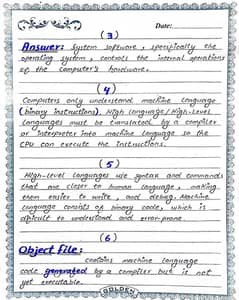 Date:
(3)
Answer: System software, specifically the
operating system, controls the internal operations
of the computer's hardware.
(4)
Computers only understand machine language
(binary instructions). High language/High-Level
Languages must be translated by a compiler
or interpreter into machine language so the
CPU can execute the instructions.
(5)
High-level Languages use syntax and commands
that are closer to human language, making
them easier to write, and debug. Machine
language consists of binary code, which is
difficult to understand and error-prone.
(6)
Object file:
contains machine language
code generated by a compiler but is not
yet executable.
GOLDEN